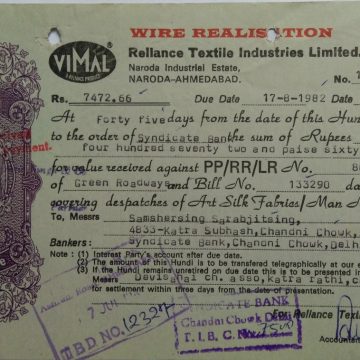 WIRE REALISATION
VIMAL
A RELIANCE PRODUCT
Reliance Textile Industries Limited.
Naroda Industrial Estate,
NARODA-AHMEDABAD.
No.
Rs. 7472.66 Due Date 17-8-1982
At Forty five days from the date of this Hun
to the order of Syndicate Bank the sum of Rupees
four hundred seventy two and paise sixty
for value received against PP/RR/LR No.
of Green Roadways and Bill No. 133290 da
covering despatches of Art Silk Fabrics/Man M
To, Messrs Samshersing Sarabjitsing,
4833-Katra Subhash, Chandni Chowk,
Bankers: Syndicate Bank, Chandni Chowk, Delh
Note : (1) Interest Party's account after due date.
(2) The amount of this Hundi to be transfered telegraphically to our
(3) If the Hundi remains unretired on due date this is to be presented in
Messrs chi. asso, katra rathi, c
for settlement within three days from the date of presentation.
7 JUL
IBD NO. 12327
SYNDICATE BANK
Chandni Chowk
T.I.B.C. No. 7500
For Reliance Textil
Accountan